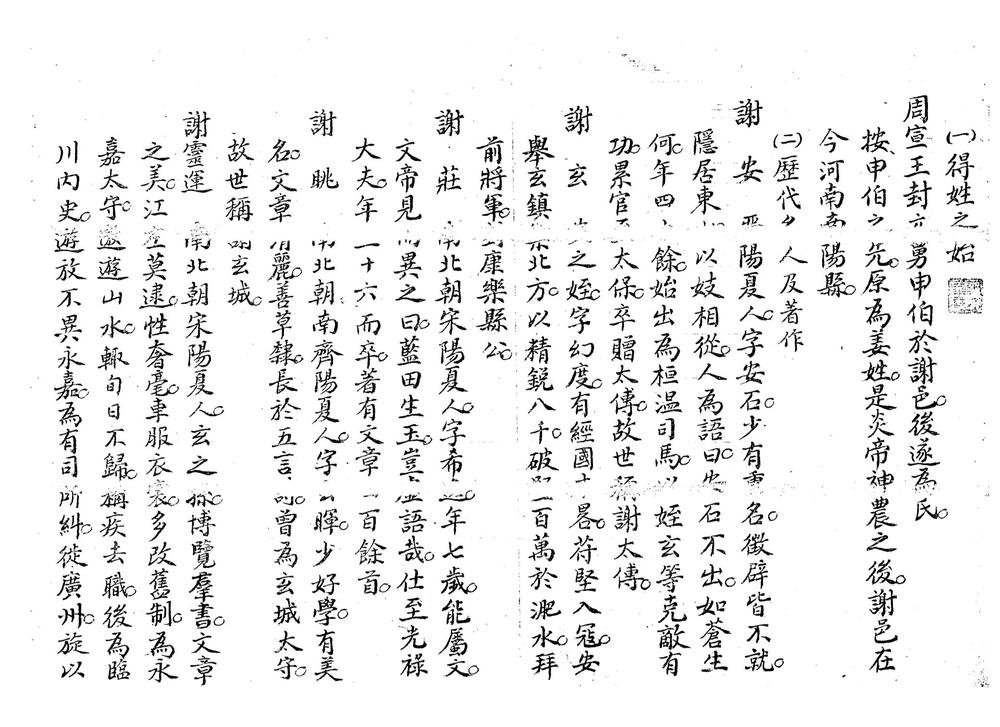 ㈠得姓之始
周宣王封舅申伯於謝邑。後遂為氏。
按申伯之先。原為姜姓。是炎帝神農之後。謝邑在
今河南陽縣。
㈡歷代人及著作
謝安 陽夏人。字安石。少有重名。徵辟皆不就。
隱居東 以妓相從。人為語曰。安石不出。如蒼生
何。年四餘。始出為桓温司馬。以姪玄等克敵有
功。累官太保。卒贈太傅。故世稱謝太傅。
謝玄 之姪。字幻度。有經國畧。苻堅入寇。安
舉玄鎮北方。以精銳八千。破百萬於淝水。拜
前將軍。封康樂縣公。
謝莊 南北朝宋陽夏人。字希逸。年七歲。能屬文。
文帝見而異之。曰。藍田生玉。豈虛語哉。仕至光祿
大夫。年十六而卒。著有文章百餘首。
謝眺 南北朝南齊陽夏人。字玄暉。少好學。有美
名。文章清麗。善草隸。長於五言。曾為玄城太守。
故世稱謝玄城。
謝靈運 南北朝宋陽夏人。玄之孫。博覽羣書。文章
之美。江左莫逮。性奢毫。車服衣裘。多改舊制。為永
嘉太守。遨遊山水。輒旬日不歸。稱疾去職。後為臨
川內史。遊放不異永嘉。為有司所糾。徙廣州。旋以